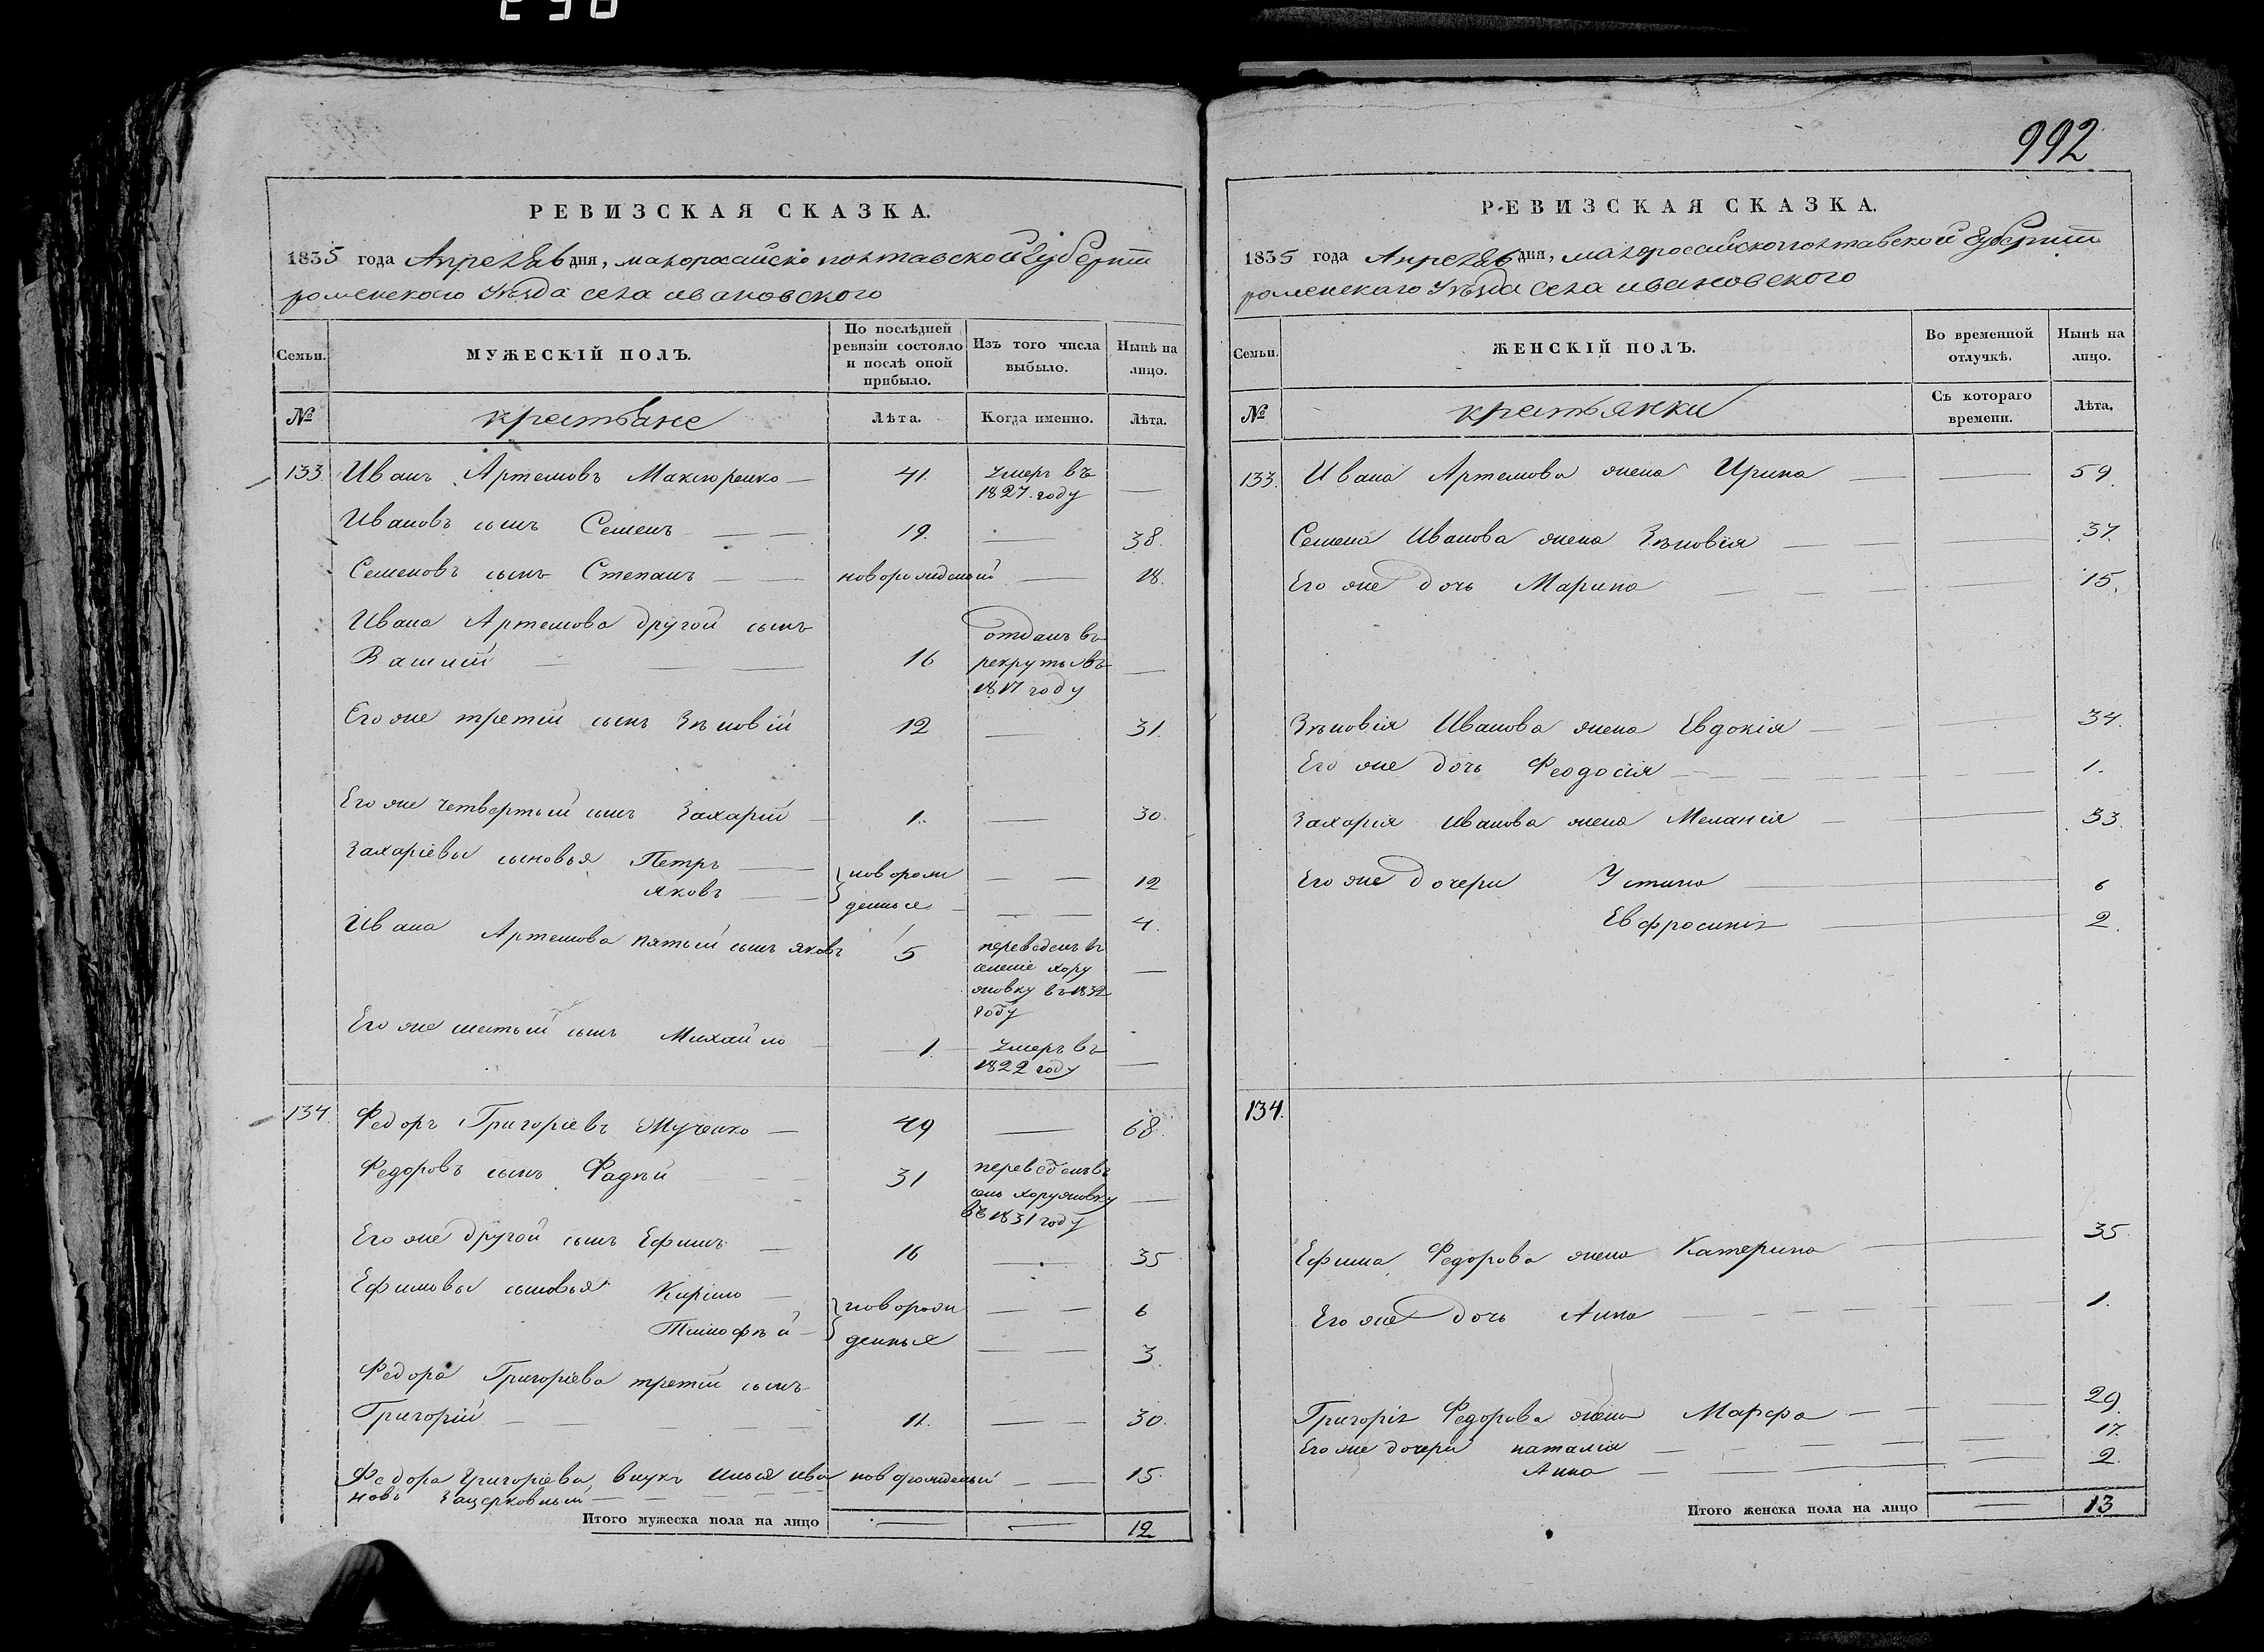 992
РЕВИЗСКАЯ СКАЗКА.
1835 года Апреля дня, малоросайско полтавской Губернии
роменского Уѣзда села ивановского
Семьи.
МУЖЕСКІЙ ПОЛЪ.
По послѣдней ревизіи состояло и послѣ оной прибыло.
Изъ того числа выбыло.
Нынѣ на лицо.
№
крестьяне
Лѣта.
Когда именно.
Лѣта.
133. Иванъ Артемовъ Максюренко — 41. умеръ въ 1827. году —
Ивановъ сынъ Семенъ — — 19. — 38.
Семеновъ сынъ Степанъ — — новорожденый — 18.
Ивана Артемова другой сынъ
Василій — — — 16 отданъ въ рекруты въ 1817 году —
Его же третій сынъ Зѣновій 12 — 31.
Его же четвертый сынъ Захарій — 1. — 30.
Захаріевы сыновья Петръ — новорож — — 12
яковъ — — денные — — 4.
Ивана Артемова пятый сынъ яковъ 5 переведенъ въ селеніе хору жовку въ 1832 году —
Его же шестый сынъ Михайло — 1. умеръ въ 1822 году —
134. Федоръ Григоріевъ Мученко — 49 — 68.
Федоровъ сынъ Фадѣй — — 31 переведенъ въ село хоружовку въ 1831 году —
Его же другой сынъ Ефимъ — 16 — 35
Ефимовы сыновья Кирило — новорож — — 6
Тимофѣй — денные — — 3.
Федора Григоріева третій сынъ
Григорій — — — 11. — — 30.
Федора Григоріева внукъ Илья ива новорожденый — — 15.
новъ Зацерковный — — — —
Итого мужеска пола на лицо — — 12
РЕВИЗСКАЯ СКАЗКА.
1835 года Апреля дня, малоросайскополтавской Губернии
роменскаго Уѣзда села ивановского
Семьи.
ЖЕНСКІЙ ПОЛЪ.
Во временной отлучкѣ.
Нынѣ на лицо.
№
крестьянки
Съ котораго времени.
Лѣта.
133. Ивана Артемова жена Ирина — — 59.
Семена Иванова жена Зѣновія — — 37.
Его же дочь Марина — — — — 15.
Зѣновія Иванова жена Евдокія — — — 34.
Его же дочь Феодосія — — — — 1.
Захарія Иванова жена Меланія — — 33.
Его же дочери Устина — — 6
Евфросинія — — 2.
134.
Ефима Федорова жена Катерина — — 35.
Его же дочь Анна — — — — 1.
Григорія Федорова жена Марфа — — — 29.
Его же дочери наталія — — — — 17.
Анна — — — — 2.
Итого женска пола на лицо — 13